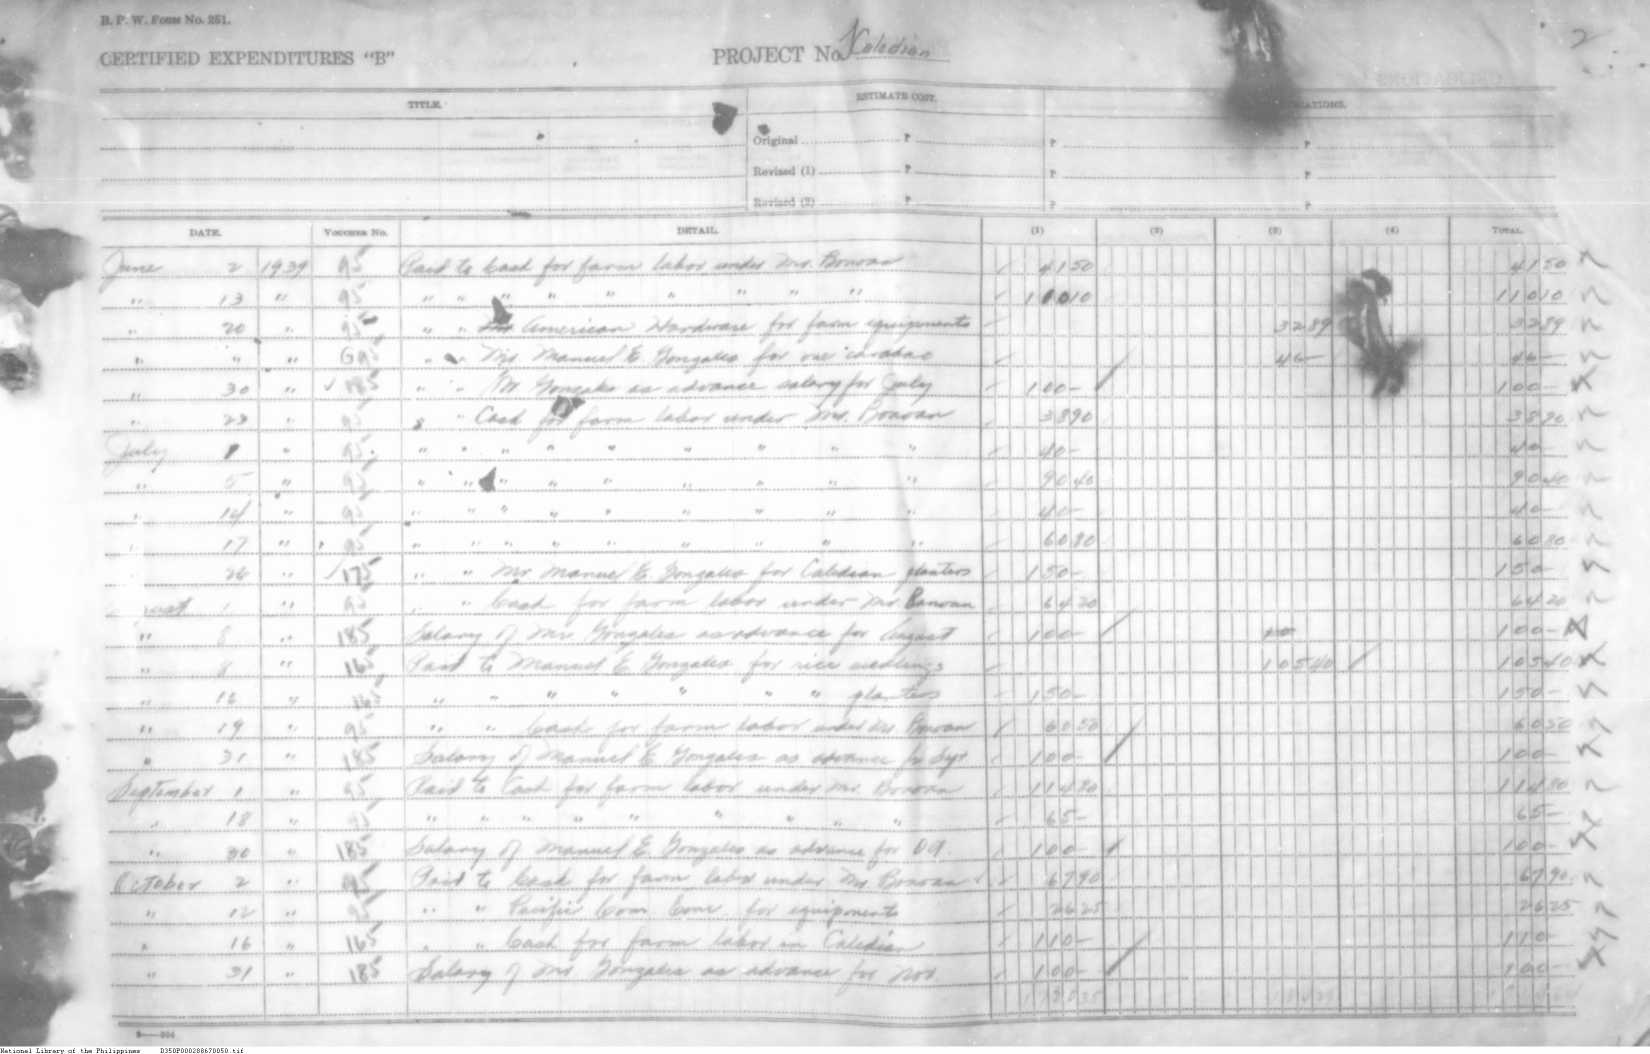 B. P. W. Form No. 251.
2
CERTIFIED EXPENDITURES "B" PROJECT No. Caledian
TITLE. ESTIMATE COST.
Original ₱ ₱ ₱
Revised (1) ₱ ₱ ₱
Revised (2) ₱ ₱ ₱
DATE. VOUCHER No. DETAIL. (1) (2) (3) (4) TOTAL.
June 2 1939 95 Paid to Cash for farm labor under Mr. Bonoan 4150 4150
" 13 " 95 " " " " " " " " " 11010 11010
" 20 " 95 " " American Hardware for farm equipments 3289 3289
" " " G95 " " Mr. Manuel E. Gonzales for one carabao 46- 46-
" 30 " 185 " " Mr Gonzales as advance salary for July 100- 100-
" 23 " 95 " " Cash for farm labor under Mr. Bonoan 3890 3890
July 1 " 95 " " " " " " " " " 40- 40-
" 5 " 95 " " " " " " " " " 9040 9040
" 14 " 95 " " " " " " " " " 40- 40-
" 17 " 95 " " " " " " " " " 6080 6080
26 " 175 " " Mr Manuel E. Gonzales for Caledian planters 150- 150-
1 " 95 " " Cash for farm labor under Mr. Bonoan 6420 6420
" 8 " 185 Salary of Mr Gonzales as advance for August 100- 100-
" 8 " 165 Paid to Manuel E. Gonzales for rice seedlings 10540 10540
" 16 " 165 " " " " " " " planters 150- 150-
" 19 " 95 " " Cash for farm labor under Mr. Bonoan 6050 6050
" 31 " 185 Salary of Manuel E. Gonzales as advance for Sept 100- 100-
September 1 " 95 Paid to Cash for farm labor under Mr. Bonoan 11480 11480
" 18 " 95 " " " " " " " " " 65- 65-
" 30 " 185 Salary of Manuel E. Gonzales as advance for Oct. 100- 100-
October 2 " 95 Paid to Cash for farm labor under Mr. Bonoan 6790 6790
" 12 " 95 " " Pacific Com. Com. for equipments 2625 2625
" 16 " 165 " " Cash for farm labor in Caledian 110- 110-
" 31 " 185 Salary of Mr. Gonzales as advance for Nov. 100- 100-
National Library of the Philippines D350P000288670050.tif